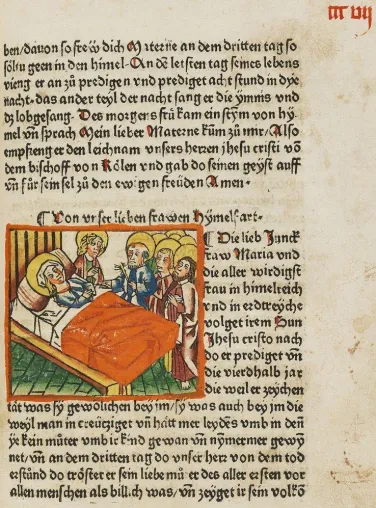 iii vij
ben/dauon so frew dich Materne an dem dritten tag so
soltu geen in den himel· An dē letsten tag seines lebens
vieng er an zů predigen vnd prediget acht stund in dye
nacht· das ander teyl der nacht sang er die ymnis vnd
dz lobgesang· Des morgens frů kam ein stym von hy̋
mel vn̄ sprach Mein lieber Materne kum zů mir/Also
empfieng er den leichnam vnsers herren jhesu cristi von
dem bischoff von Kölen vnd gab do seinen geyst auff
vn̄ fůr sein sel zů den ewigen freüden Amen·
¶ Von vnser lieben frawen hymelfart·
¶ Die lieb Junck
fraw Maria vnd
die aller wirdigst
frau in himelreich
vnd in erdtreyche
volget irem Sun
Jhesu cristo nach
do er prediget vn̄
die vierdhalb jar
die weil er zeychen
tät was sy gewölichen bey im/sy was auch bey jm die
weyl man in creütziget vn̄ hätt mer leydēs vmb in dēn
ye kein můter vmb ir kind gewan vn̄ nymermer gewyn
net/vn̄ an dem dritten tag do vnser herr von dem tod
erstůnd do tröstet er sein liebe můter des aller ersten vor
allen menschen als billich was/vn̄ zeyget ir sein volkō